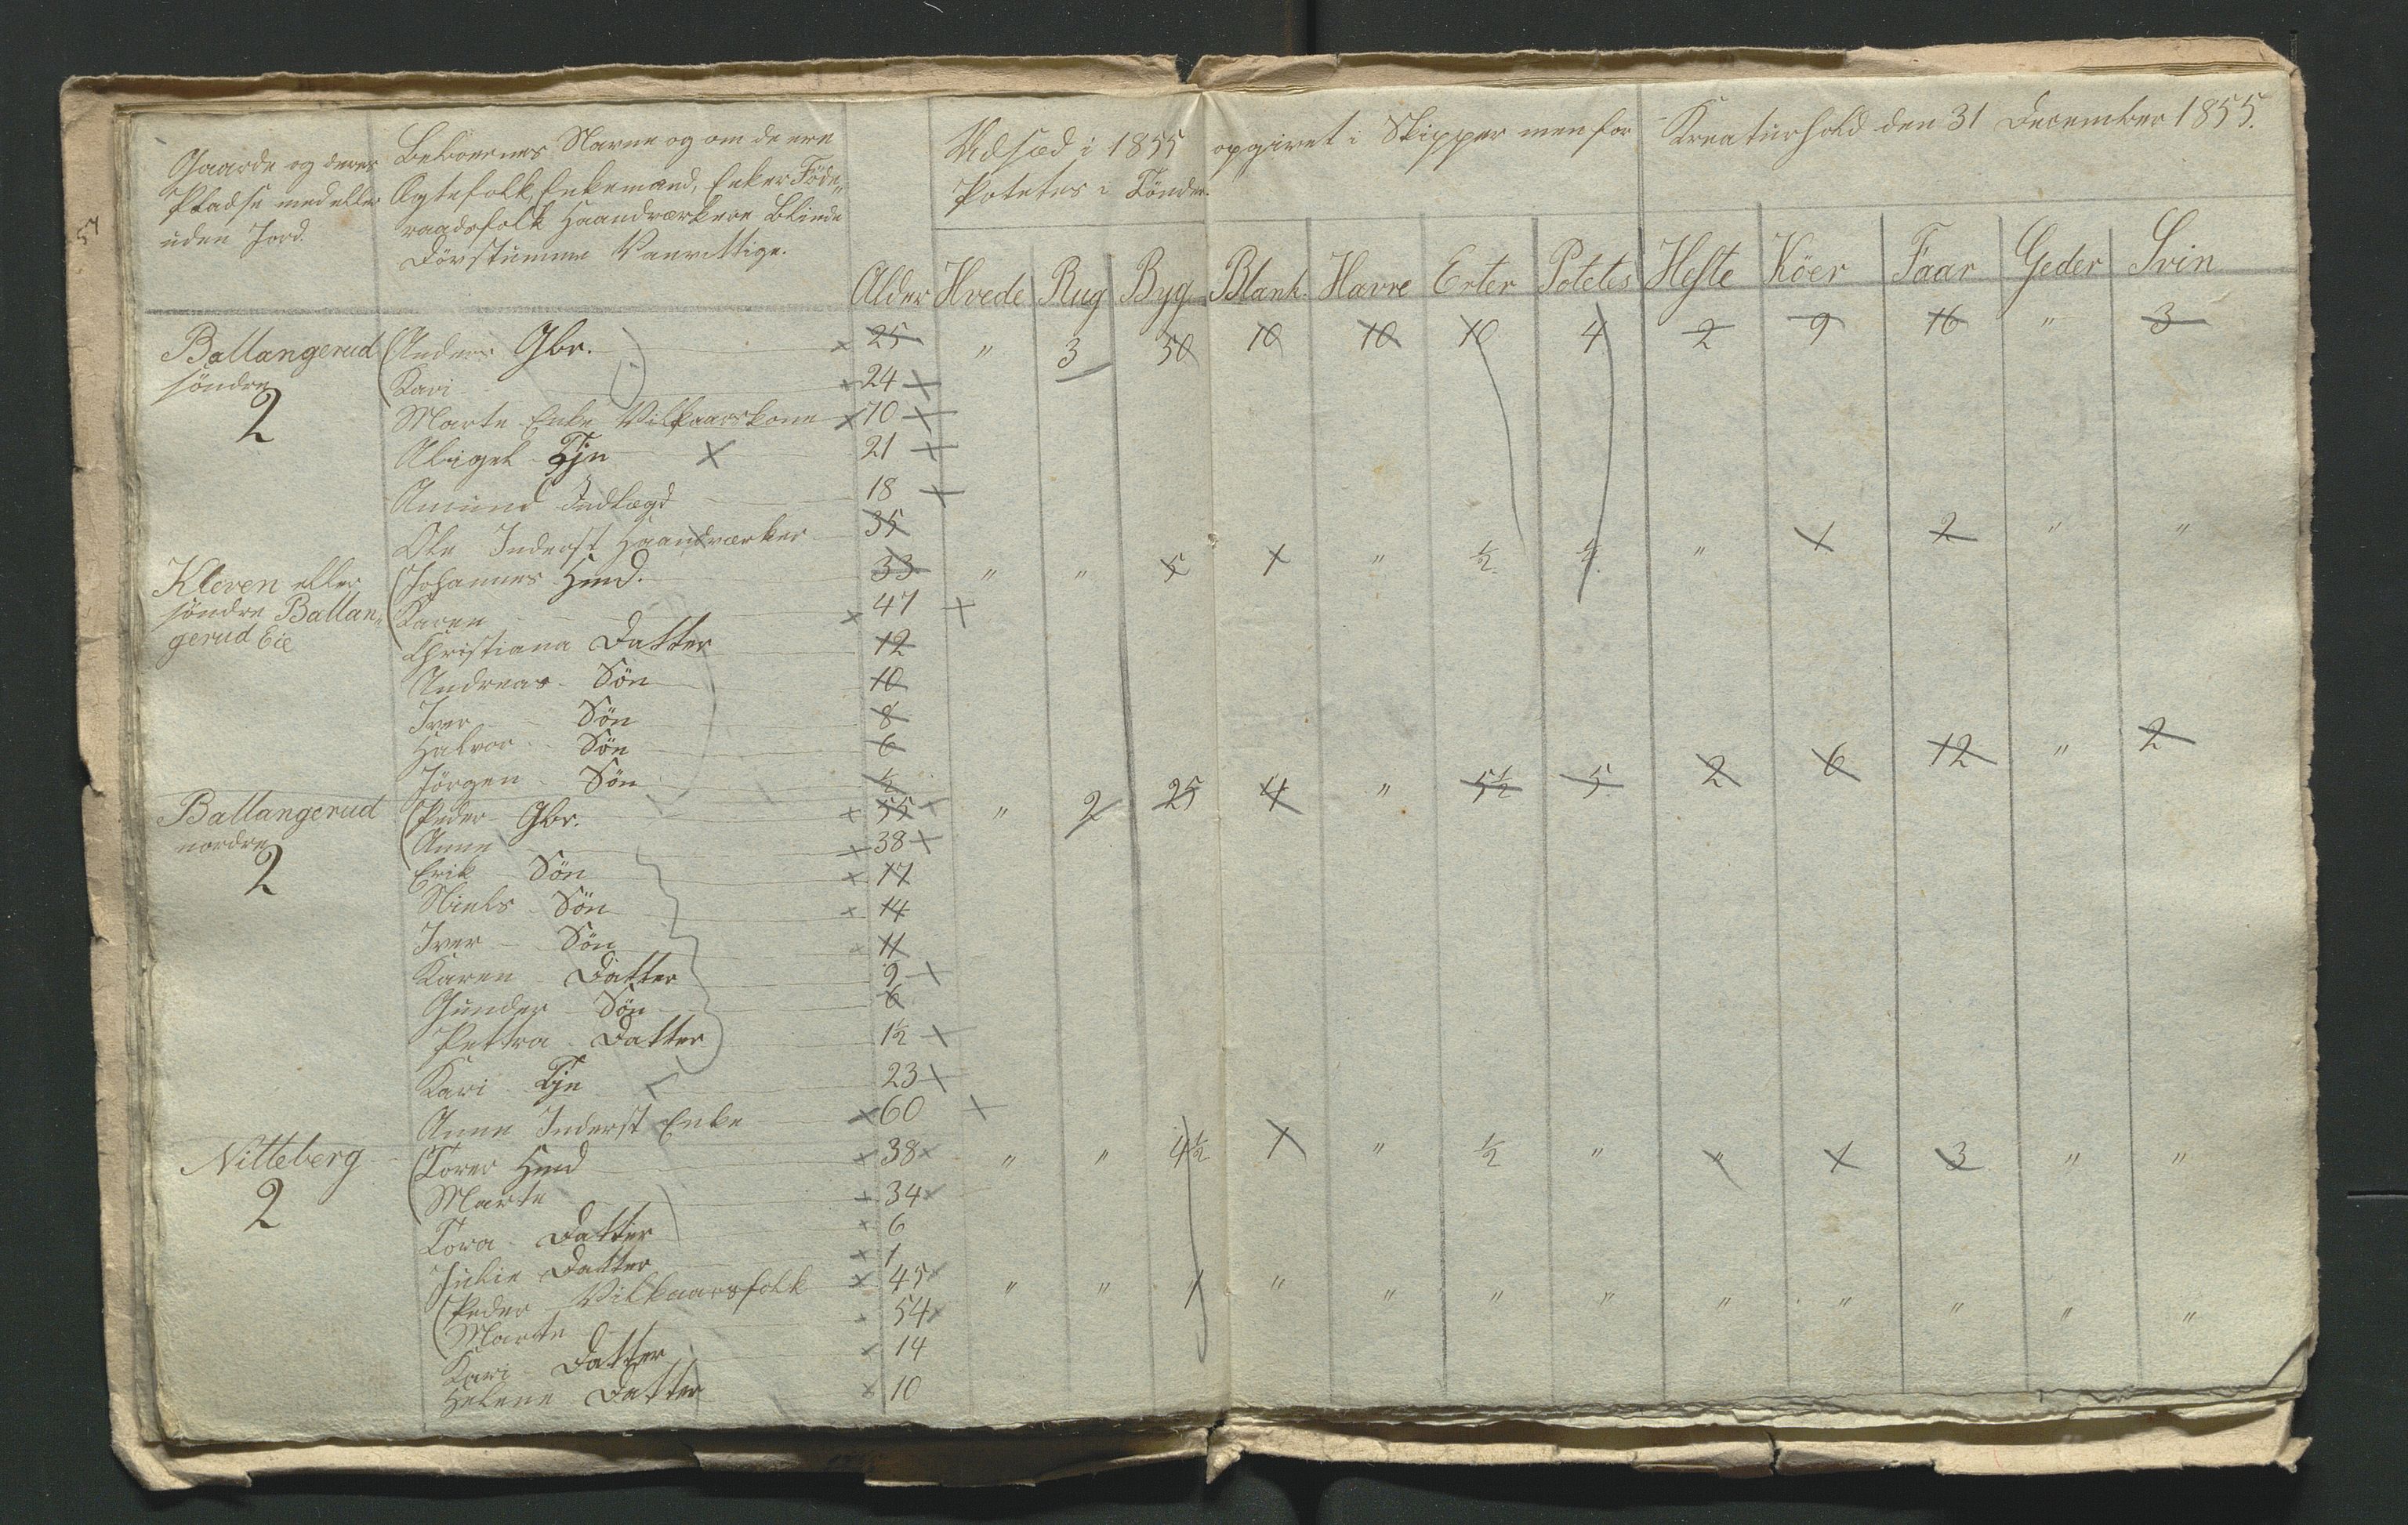 Gaarde og deres
Pladse med eller
uden Jord.
Beboernes Navne og om de ere
Ægtefolk, Enkemænd, Enker Føde„
raadsfolk Haandværkere Blinde
Døvstumme Vanvittige.
Alder
Udsæd i 1855 opgivet i Skipper men for
Potetes i Tønder.
Kreaturhold den 31 December 1855.
Hvede Rug Byg Blank. Havre Erter Potetes Heste Köer Faar Geder Svin
Ballangerud (Anders Gbr. 25 " 3 50 10 10 10 4 2 9 16 " 3
söndre (Kari 24
2 Marte Enke Vilkaarskone 70
Abigel Tjn 21
Amund Indlagd 18
Ole Inderst Haandværker 35
Kleven eller (Johannes Hmd. 33 " " 5 1 " ½ ½ " 1 2 " "
söndre Ballan„ (Karen 47
gerud Eie Christiana Datter 12
Andreas Sön 10
Iver Sön 8
Halvor Sön 6
Jörgen Sön ½
Ballangerud (Peder Gbr. 55 " 2 25 4 " 5½ 5 2 6 12 " 2
nordre (Anne 38
2 Erik Sön 17
Niels Sön 14
Iver Sön 11
Karen Datter 9
Gunder Sön 6
Pettra Datter 1½
Kari Tjn 23
Anne Inderst Enke 60
Nitteberg (Torer Hmd 38 " " 4½ 1 " ½ " " 1 3 " "
2 (Marte 34
Tora Datter 6
Julie Datter 1
(Peder Vilkaarsfolk 45 " " 1 " " " " " " " " "
(Marte 54
Kari Datter 14
Helene Datter 10